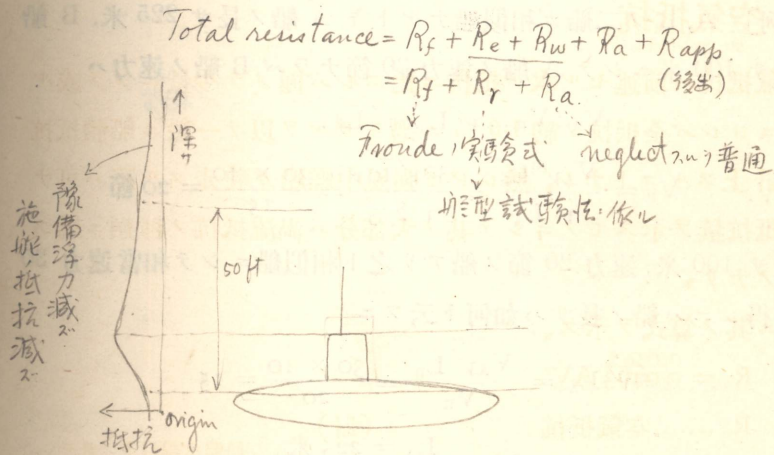 Total resistance = Rf + Re + Rw + Ra + Rapp.
= Rf + Rr + Ra. (後出)
Froude ノ実験式 neglect スルノ普通
船型試験法ニ依ル
↑深サ
豫備浮力減ズ
施能ノ抵抗減ズ
50 ft
origin
抵抗